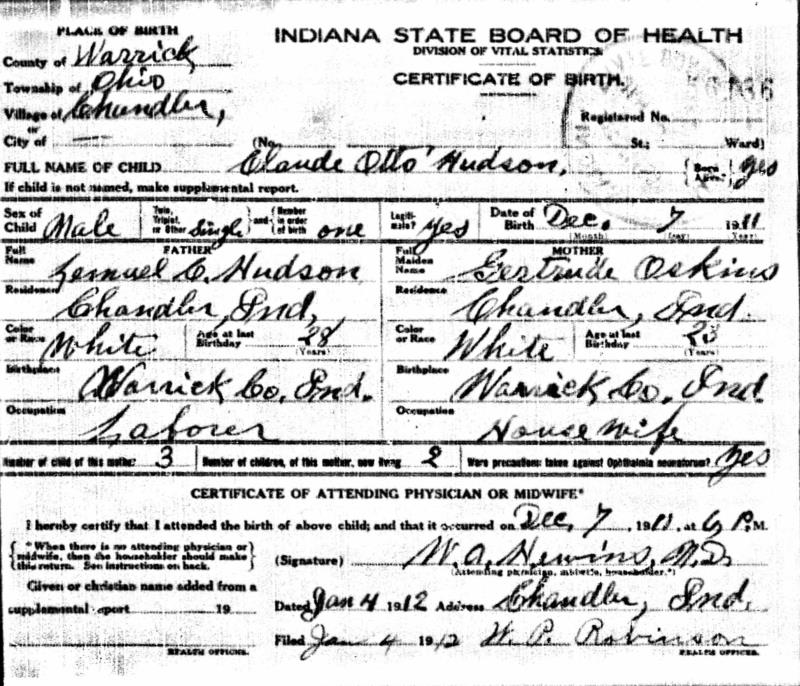 PLACE OF BIRTH
INDIANA STATE BOARD OF HEALTH
DIVISION OF VITAL STATISTICS
CERTIFICATE OF BIRTH.
County of Warrick
Township of Ohio
Village of Chandler,
or
City of
Registered No.
(No. St.; Ward)
FULL NAME OF CHILD Claude Otto Hudson, {Born Alive?} yes
If child is not named, make supplemental report.
Sex of Child Male {Twin, Triplet, or Other Single} and {Number in order of birth one} Legitimate? yes Date of Birth Dec. 7 1911
(Month) (Day) (Year)
FATHER MOTHER
Full Name Lemuel C. Hudson Full Maiden Name Gertrude Oskins
Residence Chandler, Ind, Residence Chandler, Ind.
Color or Race White Age at last Birthday 28 (Years) Color or Race White Age at last Birthday 23 (Years)
Birthplace Warrick Co, Ind. Birthplace Warrick Co. Ind
Occupation Laborer Occupation House wife
Number of child of this mother 3 Number of children, of this mother, now living 2 Were precautions taken against Ophthalmia neonatorum? yes
CERTIFICATE OF ATTENDING PHYSICIAN OR MIDWIFE*
I hereby certify that I attended the birth of above child; and that it occurred on Dec, 7, 1911, at 6 P.M.
{*When there is no attending physician or midwife, then the householder should make this return. See instructions on back.}
(Signature) W. A. Hewins, M.D.
(Attending physician, midwife, householder.*)
Given or christian name added from a
supplemental report 19
Dated Jan 4 1912 Address Chandler, Ind.
Filed Jan 4 1912 W. P. Robinson
HEALTH OFFICER. HEALTH OFFICER.